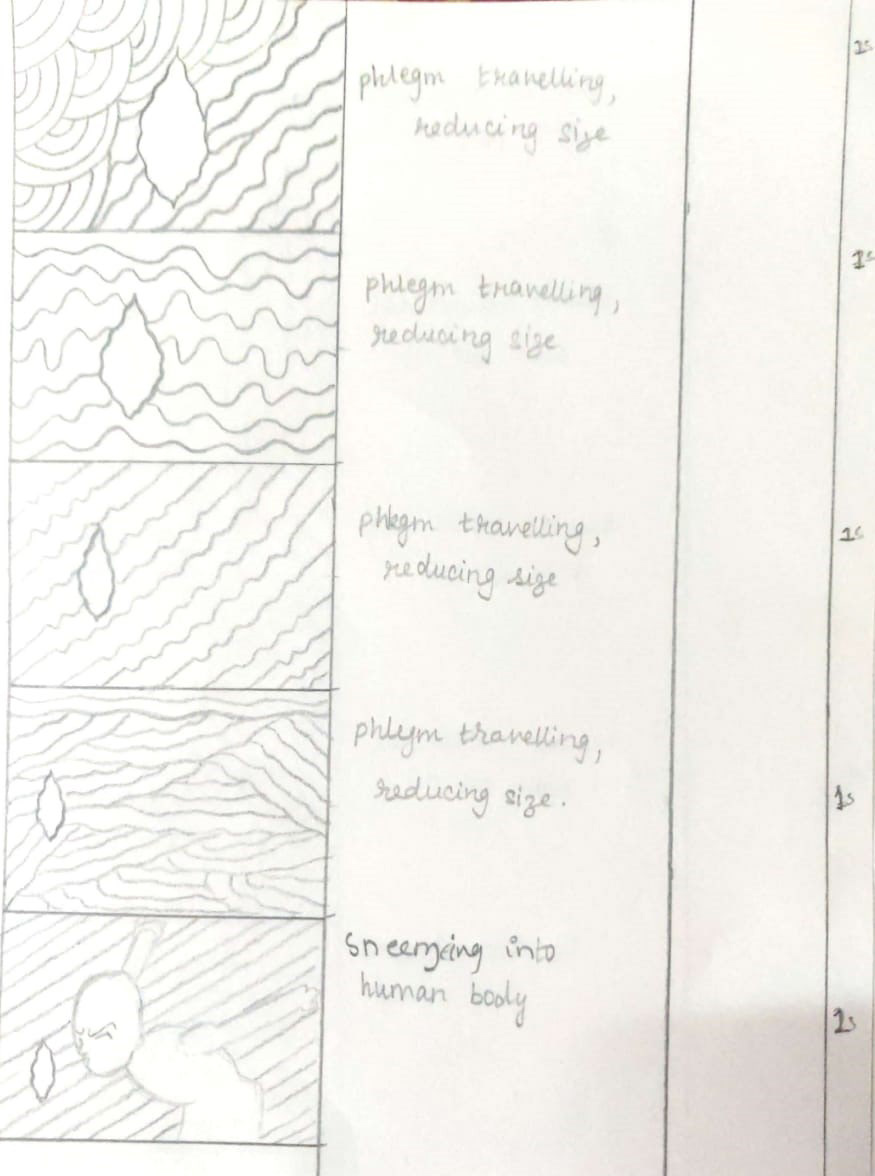 phlegm travelling,
reducing size
1s
phlegm travelling,
reducing size
1s
phlegm travelling,
reducing size
1s
phlegm travelling,
reducing size.
1s
into
human body
1s